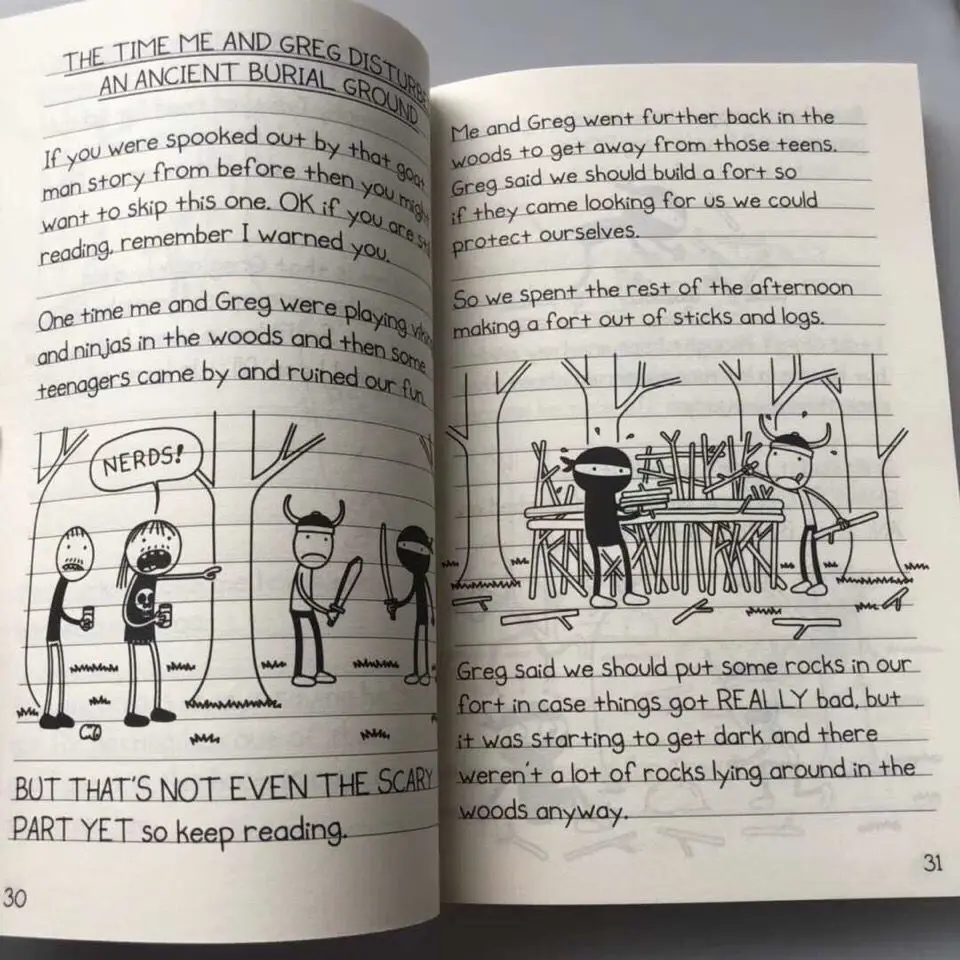 THE TIME ME AND GREG DISTURBE
AN ANCIENT BURIAL GROUND
If you were spooked out by that goat
man story from before then you might
want to skip this one. OK if you are sti
reading, remember I warned you.
One time me and Greg were playing vikin
and ninjas in the woods and then some
teenagers came by and ruined our fun.
NERDS!
BUT THAT'S NOT EVEN THE SCARY
PART YET so keep reading.
30
Me and Greg went further back in the
woods to get away from those teens.
Greg said we should build a fort so
if they came looking for us we could
protect ourselves.
So we spent the rest of the afternoon
making a fort out of sticks and logs.
Greg said we should put some rocks in our
fort in case things got REALLY bad, but
it was starting to get dark and there
weren't a lot of rocks lying around in the
woods anyway.
31